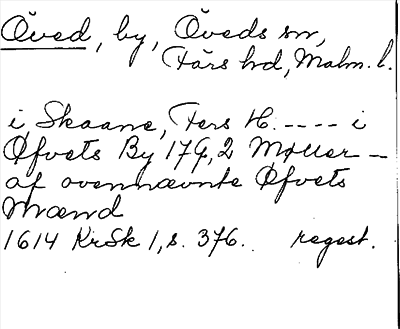 Öved, by, Öveds sn,
Färs hd, Malm. l.
i Skaane, Fers H. ---- i
Øfvets By 17 G, 2 Møller -
af ovennævnte Øfvets
Mænd
1614 KrSk 1, s. 376. regest.